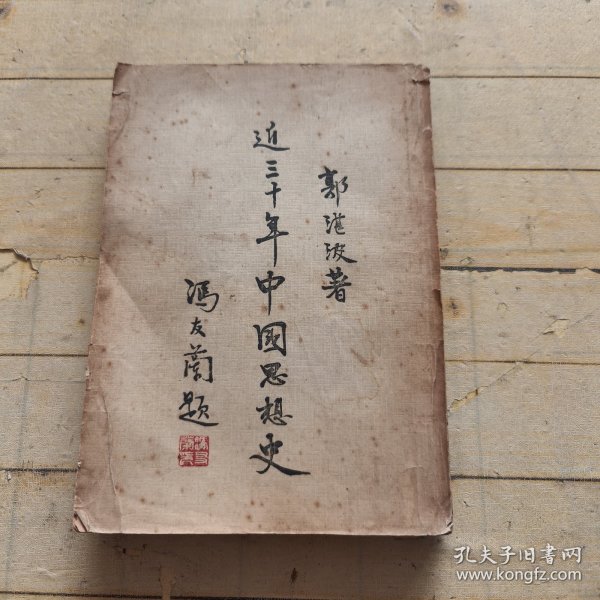 郭湛波著
近三十年中國思想史
馮友蘭題
孔夫子旧书网
www.kongfz.com